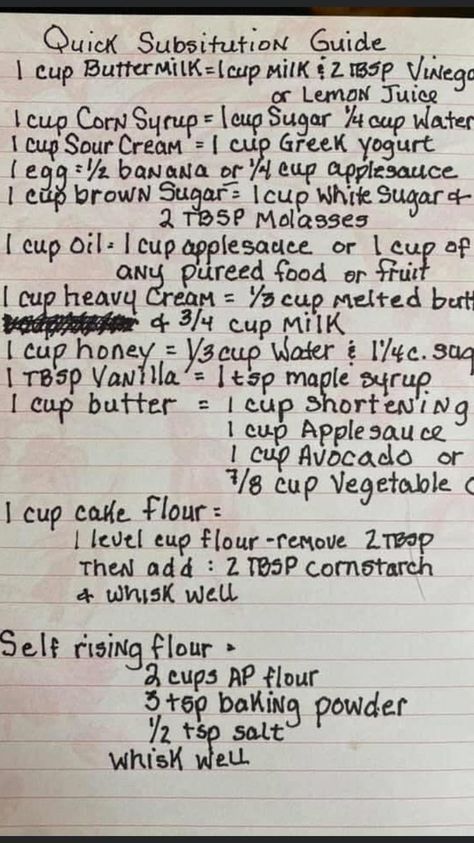 Quick Subsitution Guide
1 cup Buttermilk = 1 cup milk & 2 TBSP Vinega
or Lemon Juice
1 cup Corn Syrup = 1 cup Sugar 1/4 cup Water
1 cup Sour Cream = 1 cup Greek yogurt
1 egg = 1/2 banana or 1/4 cup applesauce
1 cup brown Sugar = 1 cup White Sugar &
2 TBSP Molasses
1 cup oil = 1 cup applesauce or 1 cup of
any pureed food or fruit
1 cup heavy Cream = 1/3 cup melted butt
& 3/4 cup milk
1 cup honey = 1/3 cup Water & 1 1/4 c. sug
1 TBSP Vanilla = 1 tsp maple syrup
1 cup butter = 1 cup Shortening
1 cup Applesauce
1 cup Avocado or
7/8 cup Vegetable
1 cup cake flour =
1 level cup flour - remove 2 TBSP
Then add : 2 TBSP cornstarch
& whisk well
Self rising flour =
2 cups AP flour
3 tsp baking powder
1/2 tsp salt
Whisk well